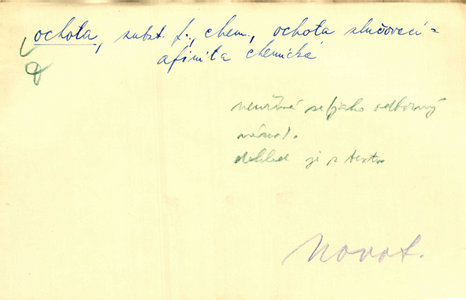 ochota, subst. f., chem., ochota slučovací =
afinita chemická
neužívá se jako odborný
název.
doklad je z textu
Novot.